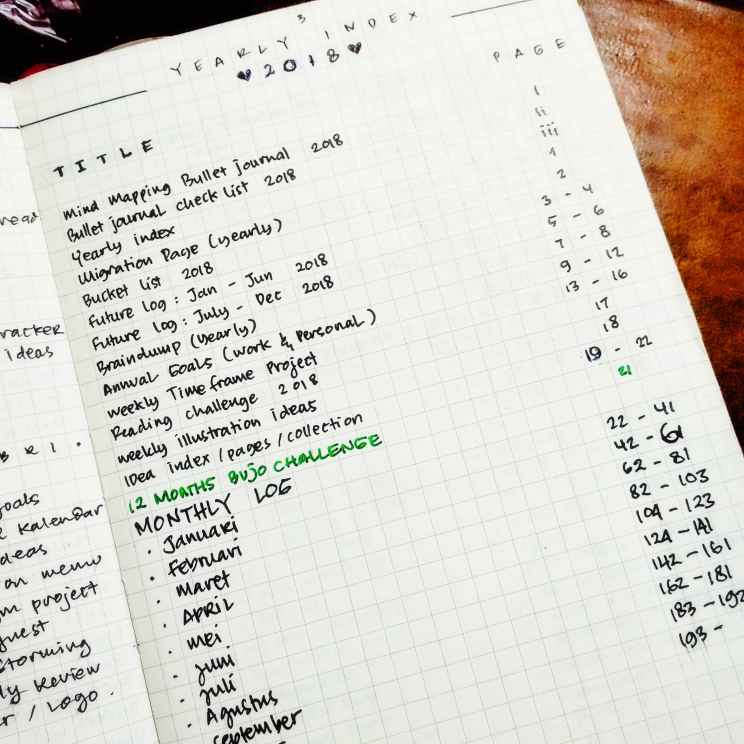 racker
ideas
oals
Kalendar
deas
on memo
m project
uest
storming
ly Review
r / Logo .
YEARLY INDEX
♥ 2018 ♥
TITLE PAGE
Mind Mapping Bullet journal 2018 i
Bullet journal check list 2018 ii
Yearly index iii
Migration Page (yearly) 1
Bucket list 2018 2
Future log : Jan - Jun 2018 3 - 4
Future log : July - Dec 2018 5 - 6
Braindump (yearly) 7 - 8
Annual Goals (work & Personal) 9 - 12
Weekly Timeframe Project 13 - 16
Reading challenge 2018 17
Weekly illustration ideas 18
IDea index / pages / collection 19 - 22
12 MONTHS BUJO CHALLENGE 21
MONTHLY LOG
· Januari 22 - 41
· Februari 42 - 61
· Maret 62 - 81
· April 82 - 103
· Mei 104 - 123
· Juni 124 - 141
· Juli 142 - 161
· Agustus 162 - 181
· September 183 - 192
193 -